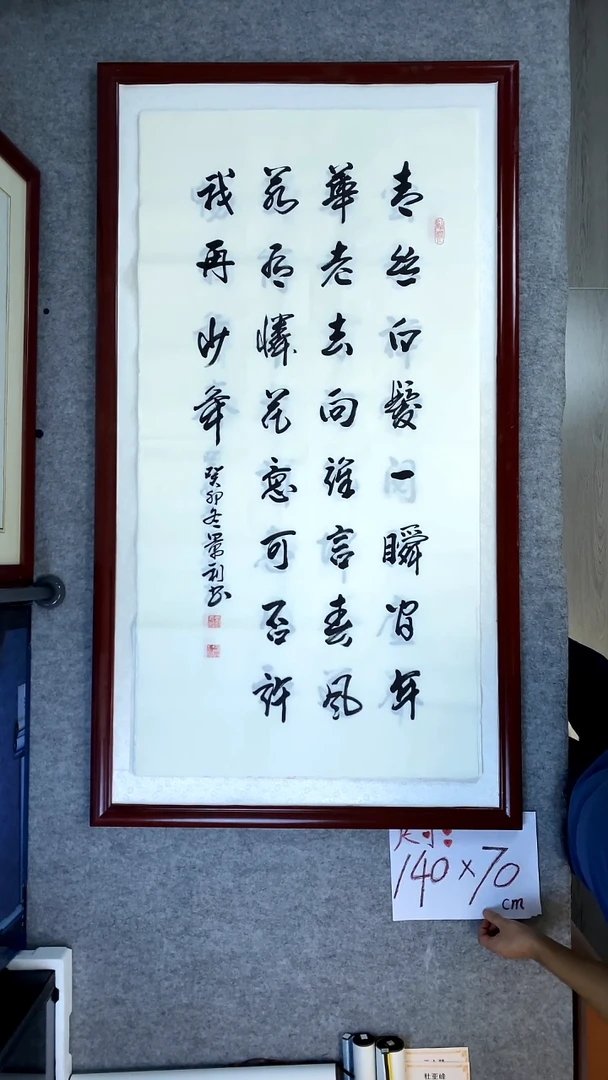 青丝白髮一瞬间年
華老去向谁言春风
若有憐花意可否许
我再少年
癸卯冬景利书
尺寸:
140×70
cm
杜亚峰